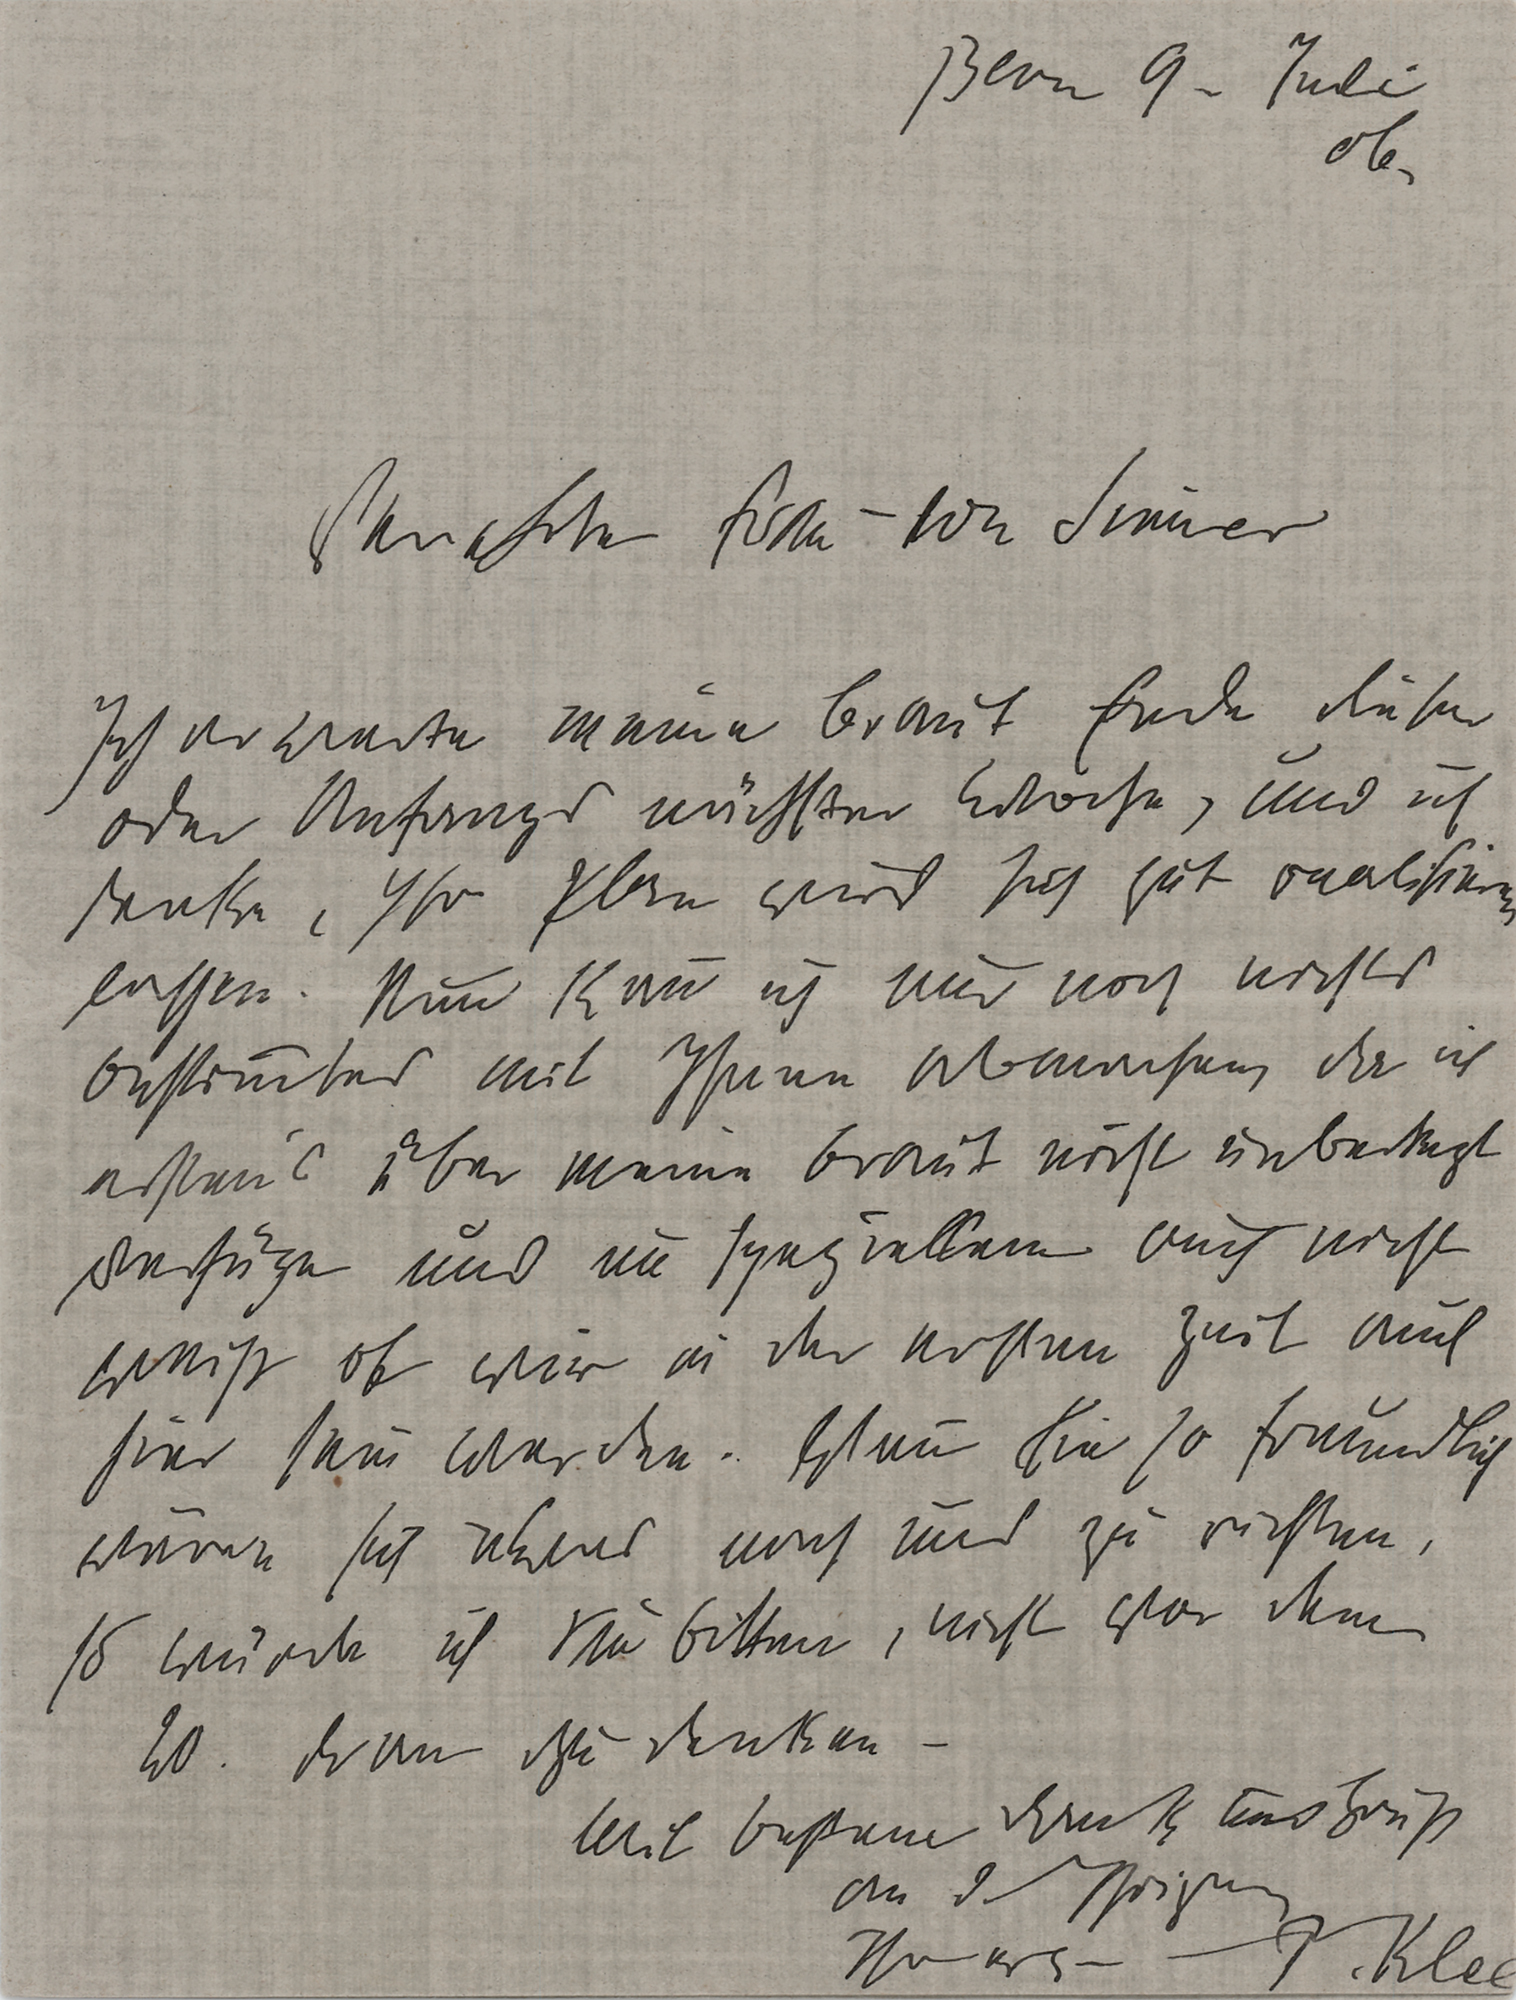 Bern 9. Juli
06.
Verehrte Frau von Sinner
Ich erwarte meine Braut Ende dieser
oder Anfangs nächster Woche, und ich
denke, Ihr Plan wird sich gut realisieren
lassen. Nun kann ich nur noch nichts
bestimtes mit Ihnen abmachen, da ich
erstens über meine Braut nicht unbedingt
verfüge und im speziellen auch nicht
weiss ob wir in der ersten Zeit auch
hier sein werden. Wenn Sie so freundlich
wären sich etwas nach uns zu richten,
so würde ich Sie bitten, nicht vor dem
20. dran zu denken –
Mit bestem Dank und Gruß
an d Ihrigen
Ihr erg. P. Klee